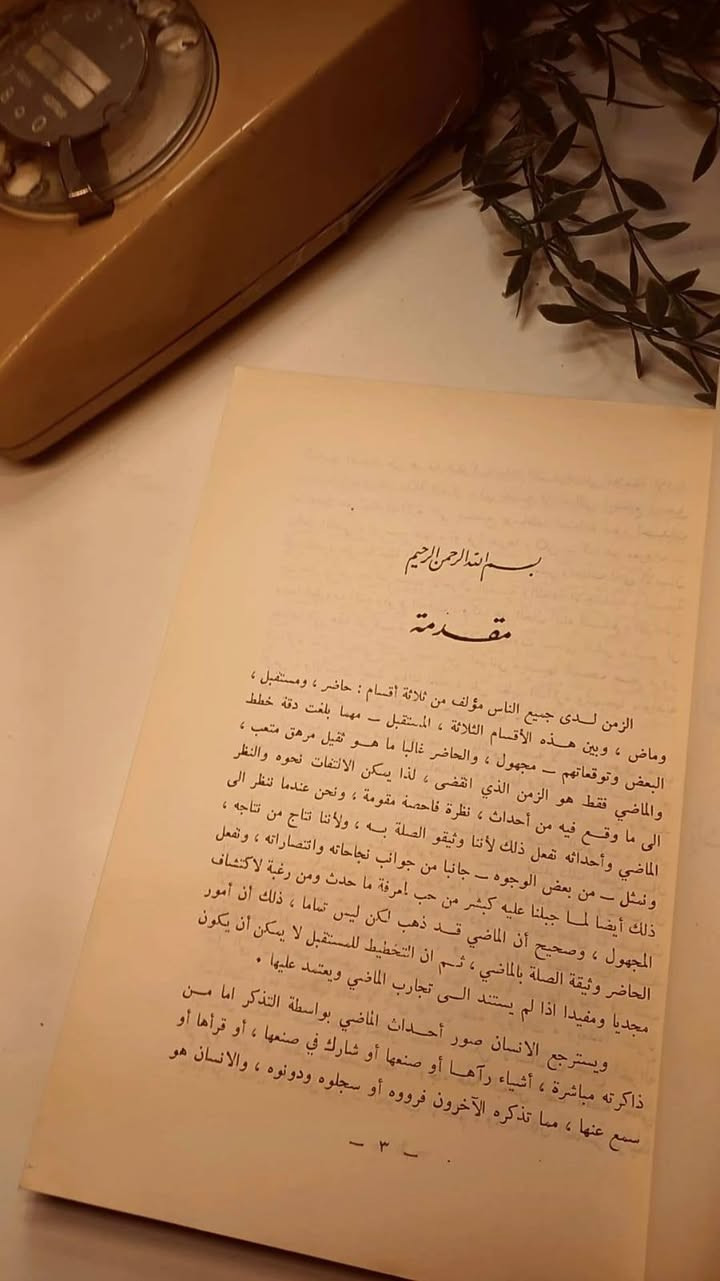 بسم الله الرحمن الرحيم
مقدمة
الزمن لدى جميع الناس مؤلف من ثلاثة أقسام : حاضر ، ومستقبل ،
وماض ، وبين هذه الأقسام الثلاثة ، المستقبل — مهما بلغت دقة خطط
البعض وتوقعاتهم — مجهول ، والحاضر غالبا ما هو ثقيل مرهق متعب ،
والماضي فقط هو الزمن الذي انقضى ، لذا يمكن الالتفات نحوه والنظر
الى ما وقع فيه من أحداث ، نظرة فاحصة مقومة ، ونحن عندما ننظر الى
الماضي وأحداثه نفعل ذلك لأننا وثيقو الصلة به ، ولأننا نتاج من نتاجه ،
ونمثل — من بعض الوجوه — جانبا من جوانب نجاحاته وانتصاراته ، ونفعل
ذلك أيضا لما جبلنا عليه كبشر من حب لمعرفة ما حدث ومن رغبة لاكتشاف
المجهول ، وصحيح أن الماضي قد ذهب لكن ليس تماما ، ذلك أن أمور
الحاضر وثيقة الصلة بالماضي ، ثم ان التخطيط للمستقبل لا يمكن أن يكون
مجديا ومفيدا اذا لم يستند الى تجارب الماضي ويعتمد عليها .
ويسترجع الانسان صور أحداث الماضي بواسطة التذكر اما من
ذاكرته مباشرة ، أشياء رآها أو صنعها أو شارك في صنعها ، أو قرأها أو
سمع عنها ، مما تذكره الآخرون فرووه أو سجلوه ودونوه ، والانسان هو
— ٣ —